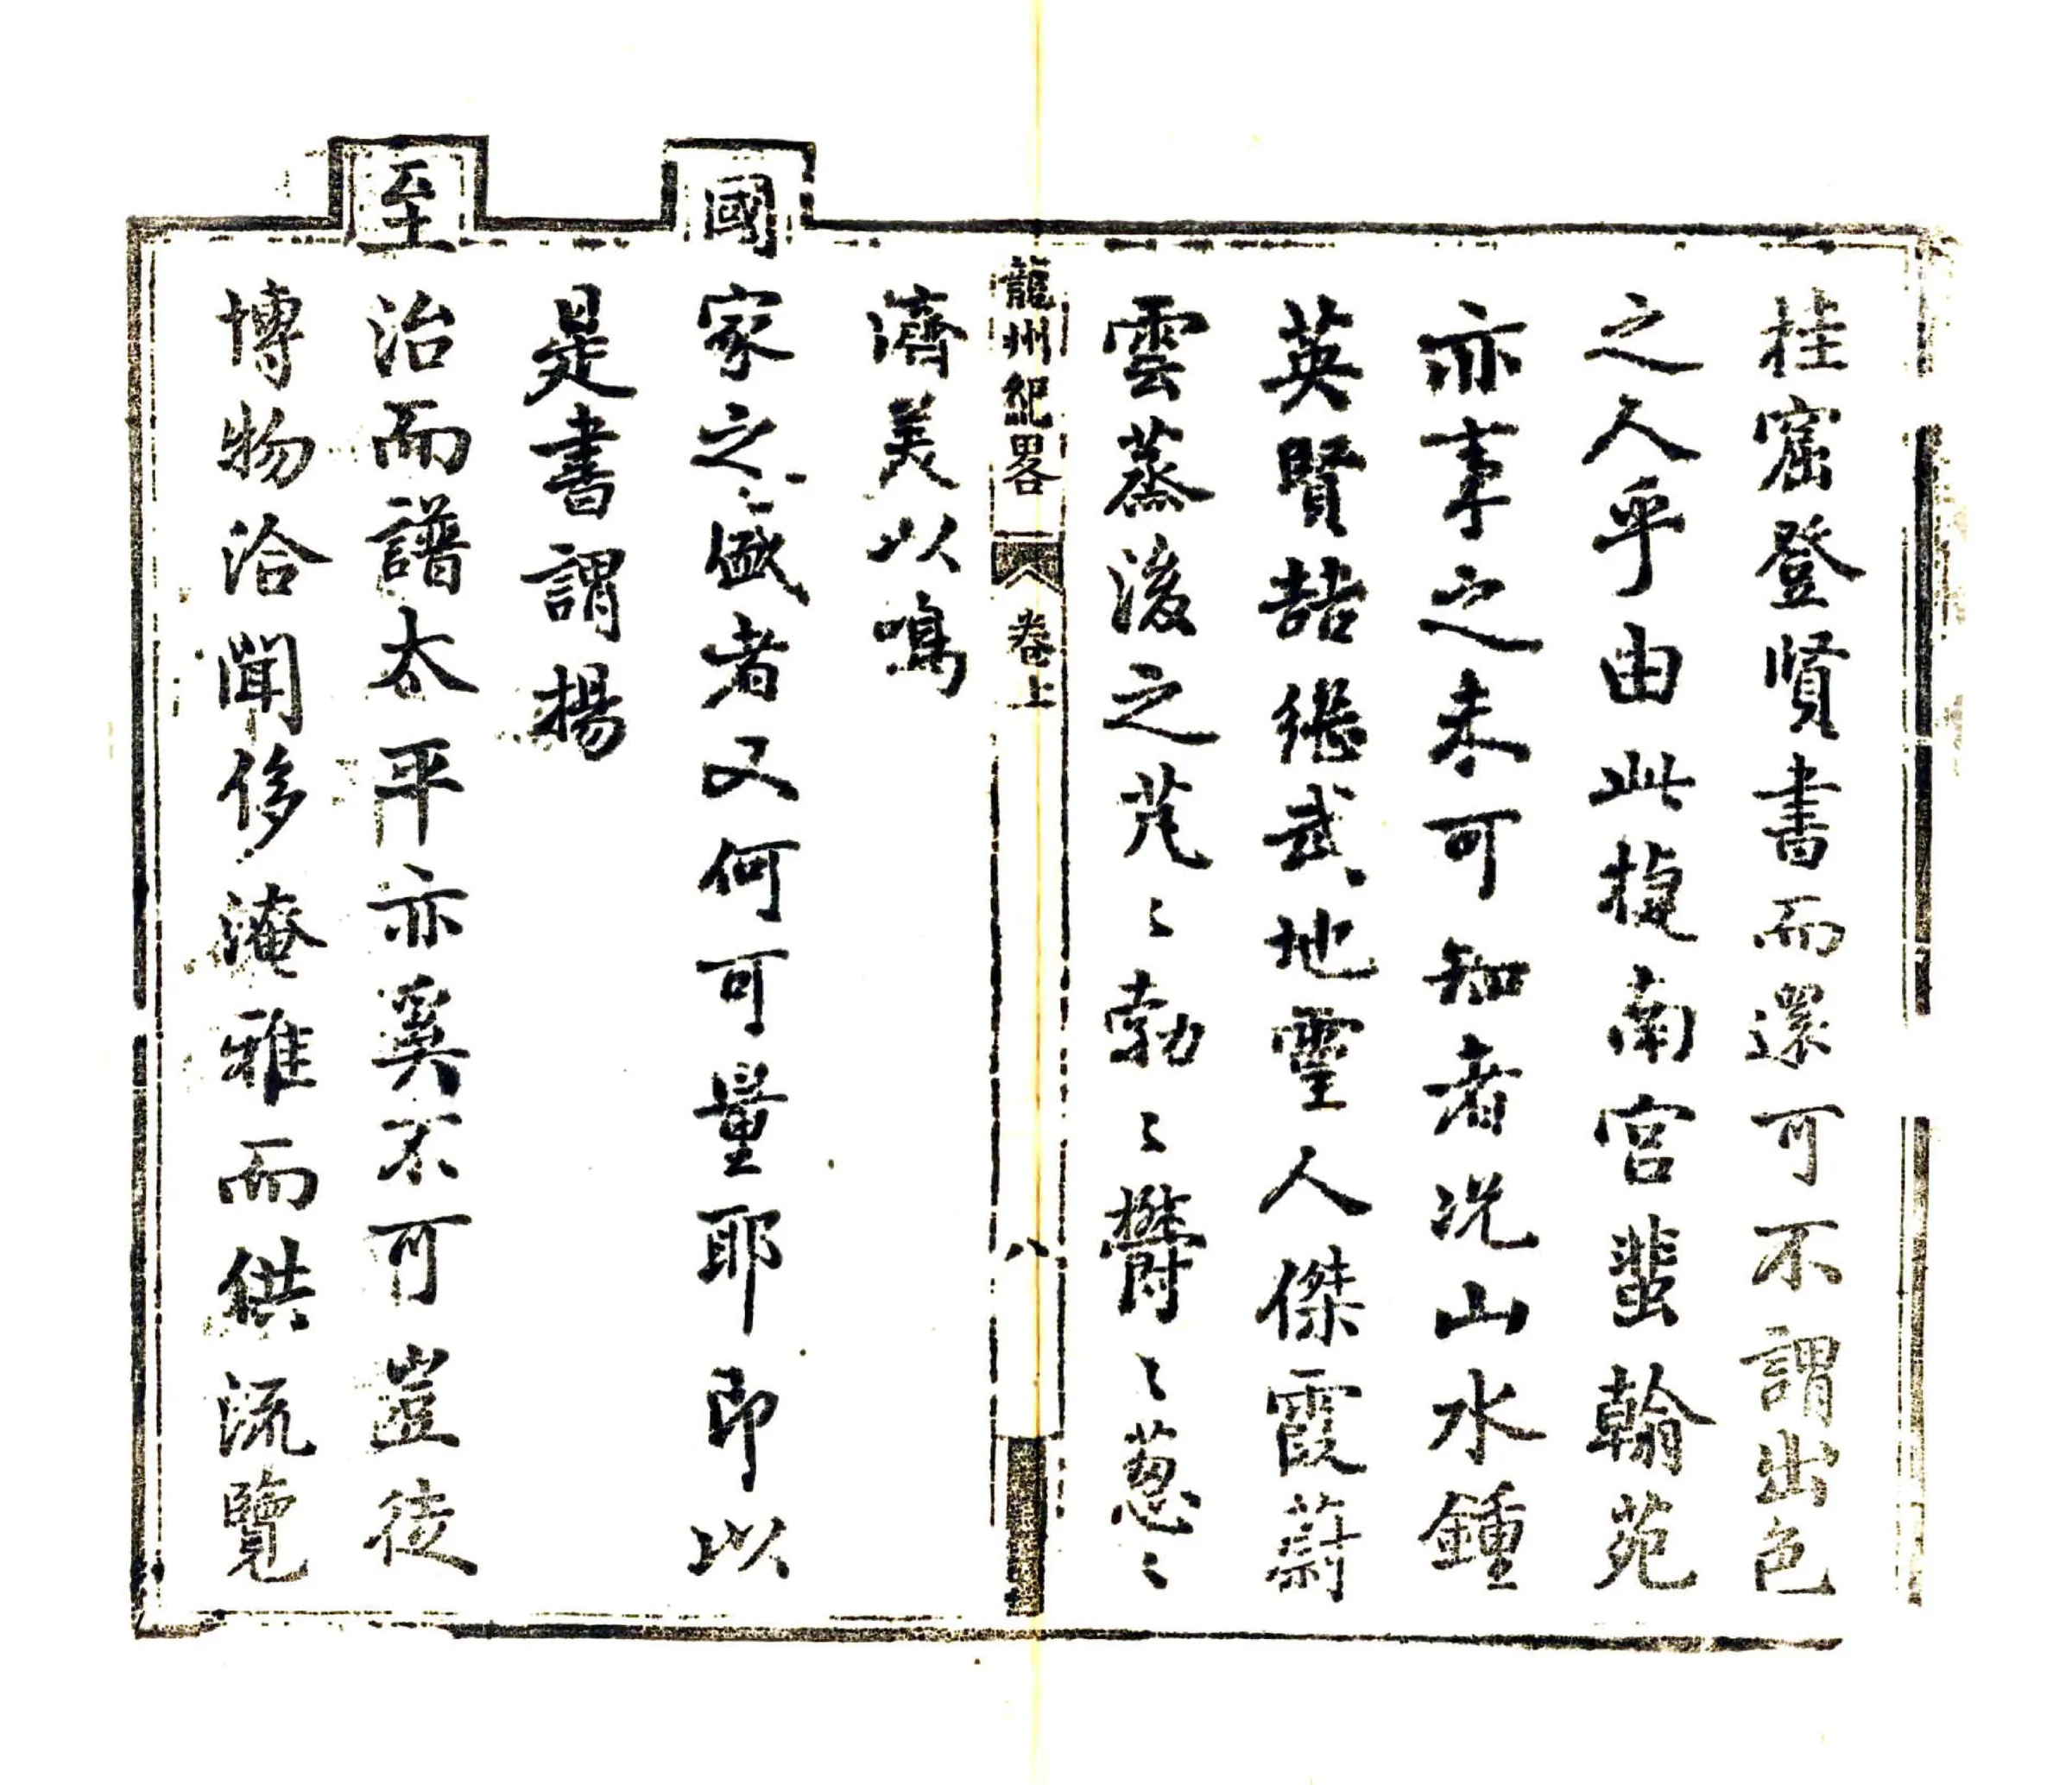 桂窟登賢書而還可不謂出色
之人乎由此捷南宮蜚翰苑
亦事之未可知者况山水鍾
英賢喆繼武地靈人傑霞蔚
雲蒸後之芃〻勃〻欝〻葱〻
龍州紀畧 卷上 八
濟美以鳴
國家之盛者又何可量耶即以
是書謂揚
至治而譜太平亦奚不可豈徒
博物洽聞侈淹雅而供流覽